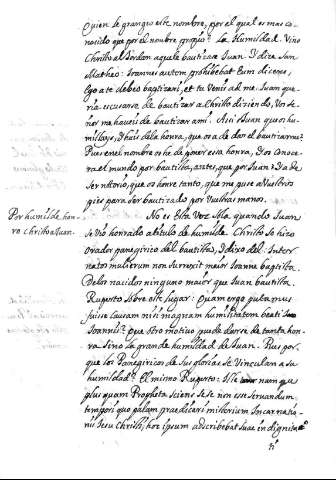 Quien le grangeó este nombre, por el qual es mas co-
nocido que por el nombre propio? La Humildad. Vino
Christo al Jordan a que le bautizase Juan. Y dize San
Matheo: Joannes autem prohibebat Eum dicens,
Ego a te debeo baptizari, et tu Venis ad me. Juan que-
ria escusarse de bautizar a Christo diziendo, Vos Se-
ñor me haveis de bautizar a mi. Asi Juan que os hu-
millays, i huis dela honra, que os a de dar el bautizarme?
Pues en el nombre os he de poner essa honra,
el mundo por bautista, antes, que por Juan:
ser notorio, que os honre tanto, que me puse a Vuestros
pies para ser bautizado por Vuestras manos.
Por humilde hon-
ro Christo a Juan.
No es Esta Voz sola quando Juan
se Vio honrado a titulo de humilde. Christo se hizo
orador panegirico del bautista, i dixo del: Inter
natos mulierum non surrexit maior Joanne baptista.
Delos nacidos ninguno maior que Juan bautista.
Ruperto sobre este lugar: Quam ergo putamus
fuisse laudem nisi magnam humilitatem beati
Joannis? que otro motivo puede darse de tanta hon-
ra sino la grande humildad de Juan. Pues por-
que los Panegiricos de sus glorias se Vinculan a su
humildad? El mismo Ruperto: Ille nam que
plus quam Propheta sciens se se non esse servandum
tempori quo palam praedicari misterium Incarnatio-
nis Jesu Christi, hoc ipsum adscribebat suae indignita-
ti